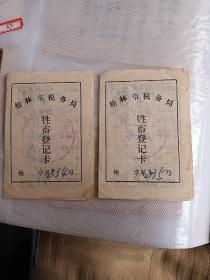 榆林市税务局
牲畜登记卡
榆 字第834号
榆林市税务局
牲畜登记卡
榆 字第335号